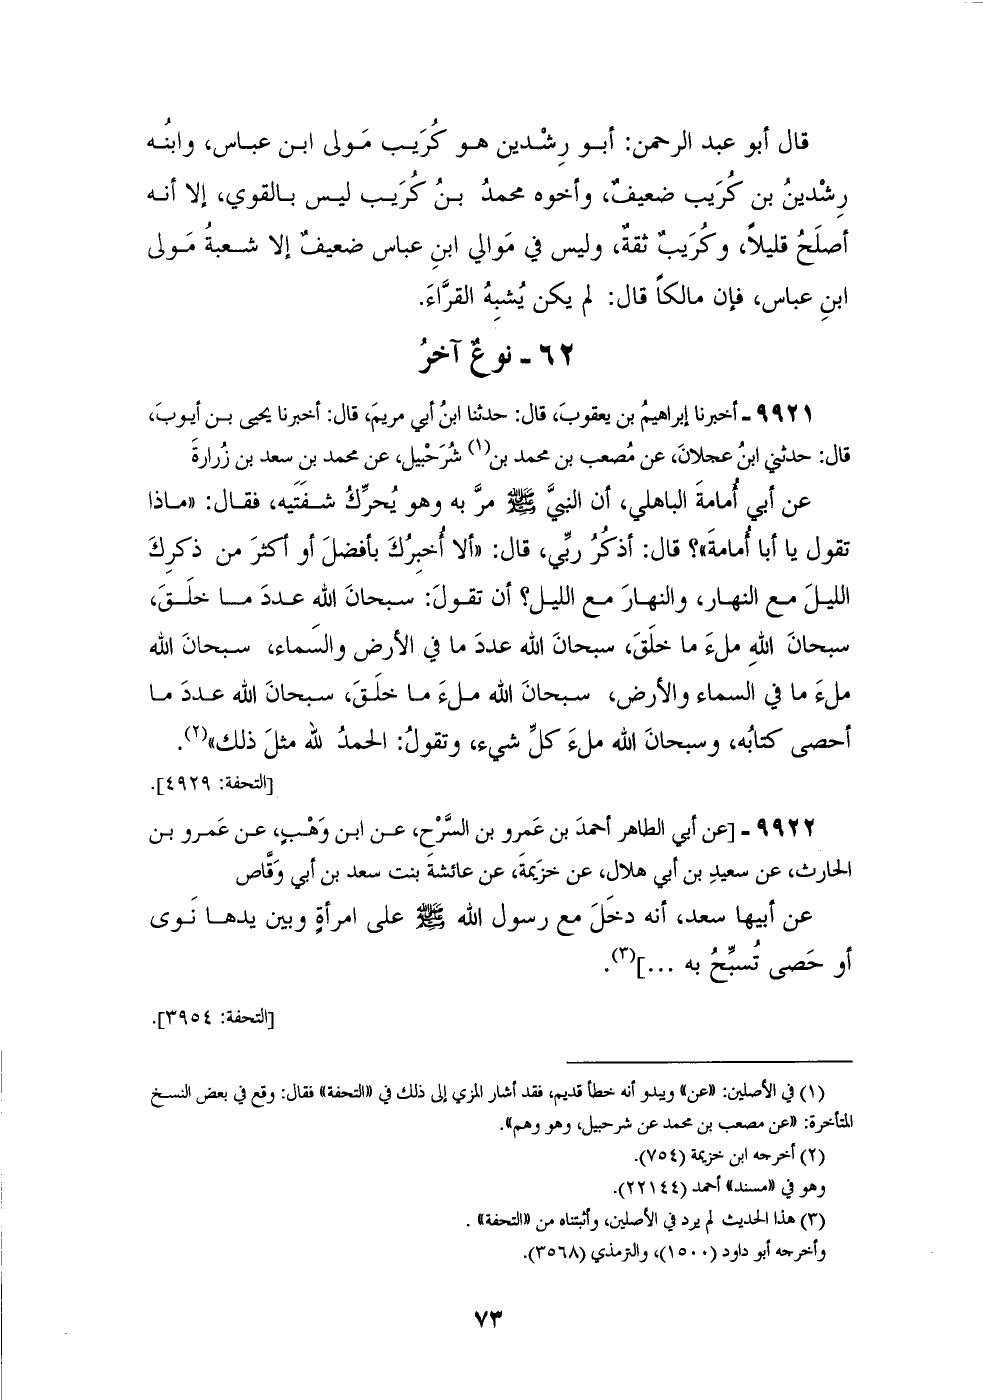 قال أبو عبد الرحمن: أبـو رِشْـدين هـو كُرَيـب مَـولى ابـن عبـاس، وابنُـه
رِشْدينُ بن كُرَيب ضعيفٌ، وأخوه محمدُ بـنُ كُرَيـب ليـس بـالقوي، إلا أنـه
أصلَحُ قليلاً، وكُرَيبٌ ثقةٌ، وليس في مَوالي ابنِ عباس ضعيفٌ إلا شـعبةُ مَـولى
ابنِ عباس، فإن مالكاً قال: لم يكن يُشبِهُ القرَّاءَ.
٦٢ ـ نوعٌ آخرُ
٩٩٢١ ـ أخبرنا إبراهيمُ بن يعقوبَ، قال: حدثنا ابنُ أبي مريمَ، قال: أخبرنا يحيى بـن أيـوبَ،
قال: حدثني ابنُ عجلانَ، عن مُصعب بن محمد بن(١) شُرَحْبيل، عن محمد بن سعد بن زُرارةَ
عن أبي أُمامةَ الباهلي، أن النبيَّ ﷺ مرَّ به وهو يُحرِّكُ شـفَتَيه، فقـال: «مـاذا
تقول يا أبا أُمامةَ»؟ قال: أذكُرُ ربِّي، قال: «ألا أُخبِرُكَ بأفضلَ أو أكثرَ من ذكرِكَ
الليـلَ مـع النهـار، والنهـارَ مـع الليـل؟ أن تقـولَ: سـبحانَ الله عـددَ مـا خلَـقَ،
سبحانَ اللهِ ملءَ ما خلَقَ، سبحانَ الله عددَ ما في الأرض والسَّماء، سـبحانَ الله
ملءَ ما في السماء والأرض، سـبحانَ الله مـلءَ مـا خلَـقَ، سـبحانَ الله عـددَ مـا
أحصى كتابُه، وسبحانَ الله ملءَ كلِّ شيء، وتقولُ: الحمدُ لله مثلَ ذلك»(٢).
[التحفة: ٤٩٢٩].
٩٩٢٢ ـ [عن أبي الطاهر أحمدَ بن عَمرو بن السَّرْح، عـن ابـن وَهْـبٍ، عـن عَمـرو بـن
الحارث، عن سعيدِ بن أبي هلال، عن خزيمةَ، عن عائشةَ بنت سعد بن أبي وَقَّاص
عن أبيها سعد، أنه دخَلَ مع رسول الله ﷺ على امرأةٍ وبين يدهـا نَـوى
أو حَصى تُسبِّحُ به ...](٣).
[التحفة: ٣٩٥٤].
(١) في الأصلين: «عن» ويبدو أنه خطأ قديم، فقد أشار المزي إلى ذلك في «التحفة» فقال: وقع في بعض النسـخ
المتأخرة: «عن مصعب بن محمد عن شرحبيل، وهو وهم».
(٢) أخرجه ابن خزيمة (٧٥٤).
وهو في «مسند» أحمد (٢٢١٤٤).
(٣) هذا الحديث لم يرد في الأصلين، وأثبتناه من «التحفة» .
وأخرجه أبو داود (١٥٠٠)، والترمذي (٣٥٦٨).
٧٣